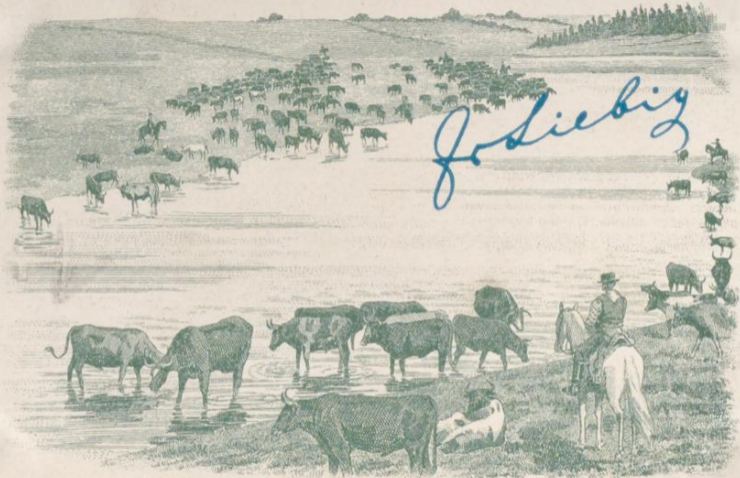 Jv Liebig